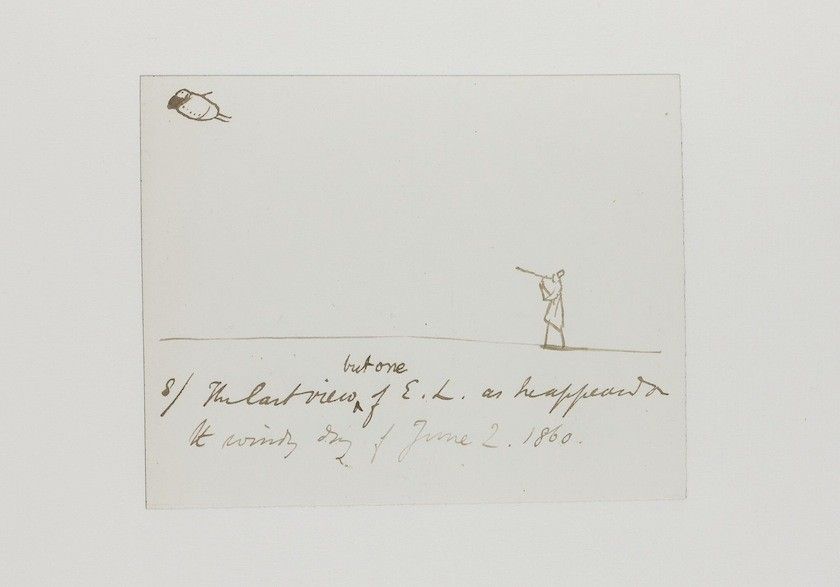 but one
8/ The last view ‸ of E. L. as he appeared on
the windy day of June 2. 1860.